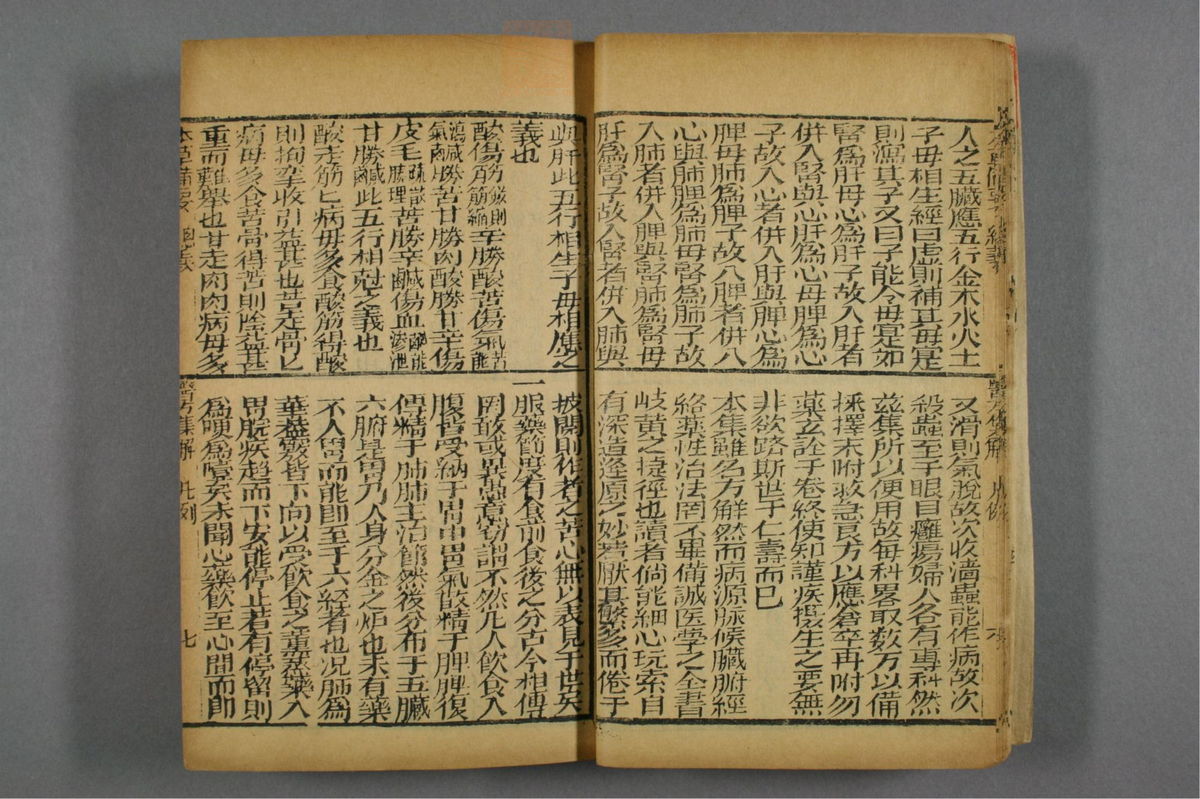 人之五臟應五行金木水火土
子母相生經曰虛則補其母寔
則瀉其子又曰子能令母寔如
腎爲肝母心爲肝子故入肝者
併入腎與心肝爲心母脾爲心
子故入心者併入肝與脾心爲
脾母肺爲脾子故入脾者併入
心與肺脾爲肺母腎爲肺子故
入肺者併入脾與腎肺爲腎母
肝爲腎子故入腎者併入肺與
與肝此五行相生子母相應之
義也
酸傷筋斂則筋縮辛勝酸苦傷氣苦能
瀉氣鹹勝苦甘勝肉酸勝甘辛傷
皮毛疏散腠理苦勝辛鹹傷血鹹能滲泄
甘勝鹹此五行相尅之義也
酸走筋匕病毋多食酸筋得酸
則拘攣收引益甚也苦走骨匕
病毋多食苦骨得苦則陰益甚
重而難舉也甘走肉肉病毋多
本草備要
又滑則氣脫故次收濇蟲能作病故次
殺蟲至于眼目癰瘍婦人各有專科然
兹集所以便用故每科畧取数方以備
採擇末附救急良方以應倉卒再附勿
藥玄詮于卷終使知謹疾攝生之要無
非欲路斯世于仁壽而已
本集雖名方解然而病源脉候臟腑經
絡藥性治法罔不畢備誠医學之全書
岐黃之捷徑也讀者倘能細心玩索自
有深造逢原之妙若厭其繁多而倦于
披閱則作者之苦心無以表見于世矣
一服藥節度有食前食後之分古今相傳
罔敢或異愚意竊謂不然凡人飲食入
腹皆受納于胃中胃氣散精于脾脾復
傳精于肺肺主治節然後分布于五臓
六腑是胃乃人身分金之炉也未有藥
不入胃而能即至于六經者也况肺爲
華蓋竅皆下向以受飲食之薰蒸藥入
胃脘疾趨而下安能停止若有停留則
爲哽爲噎矣未聞心藥飲至心間而卽
醫方集解 凡例 七